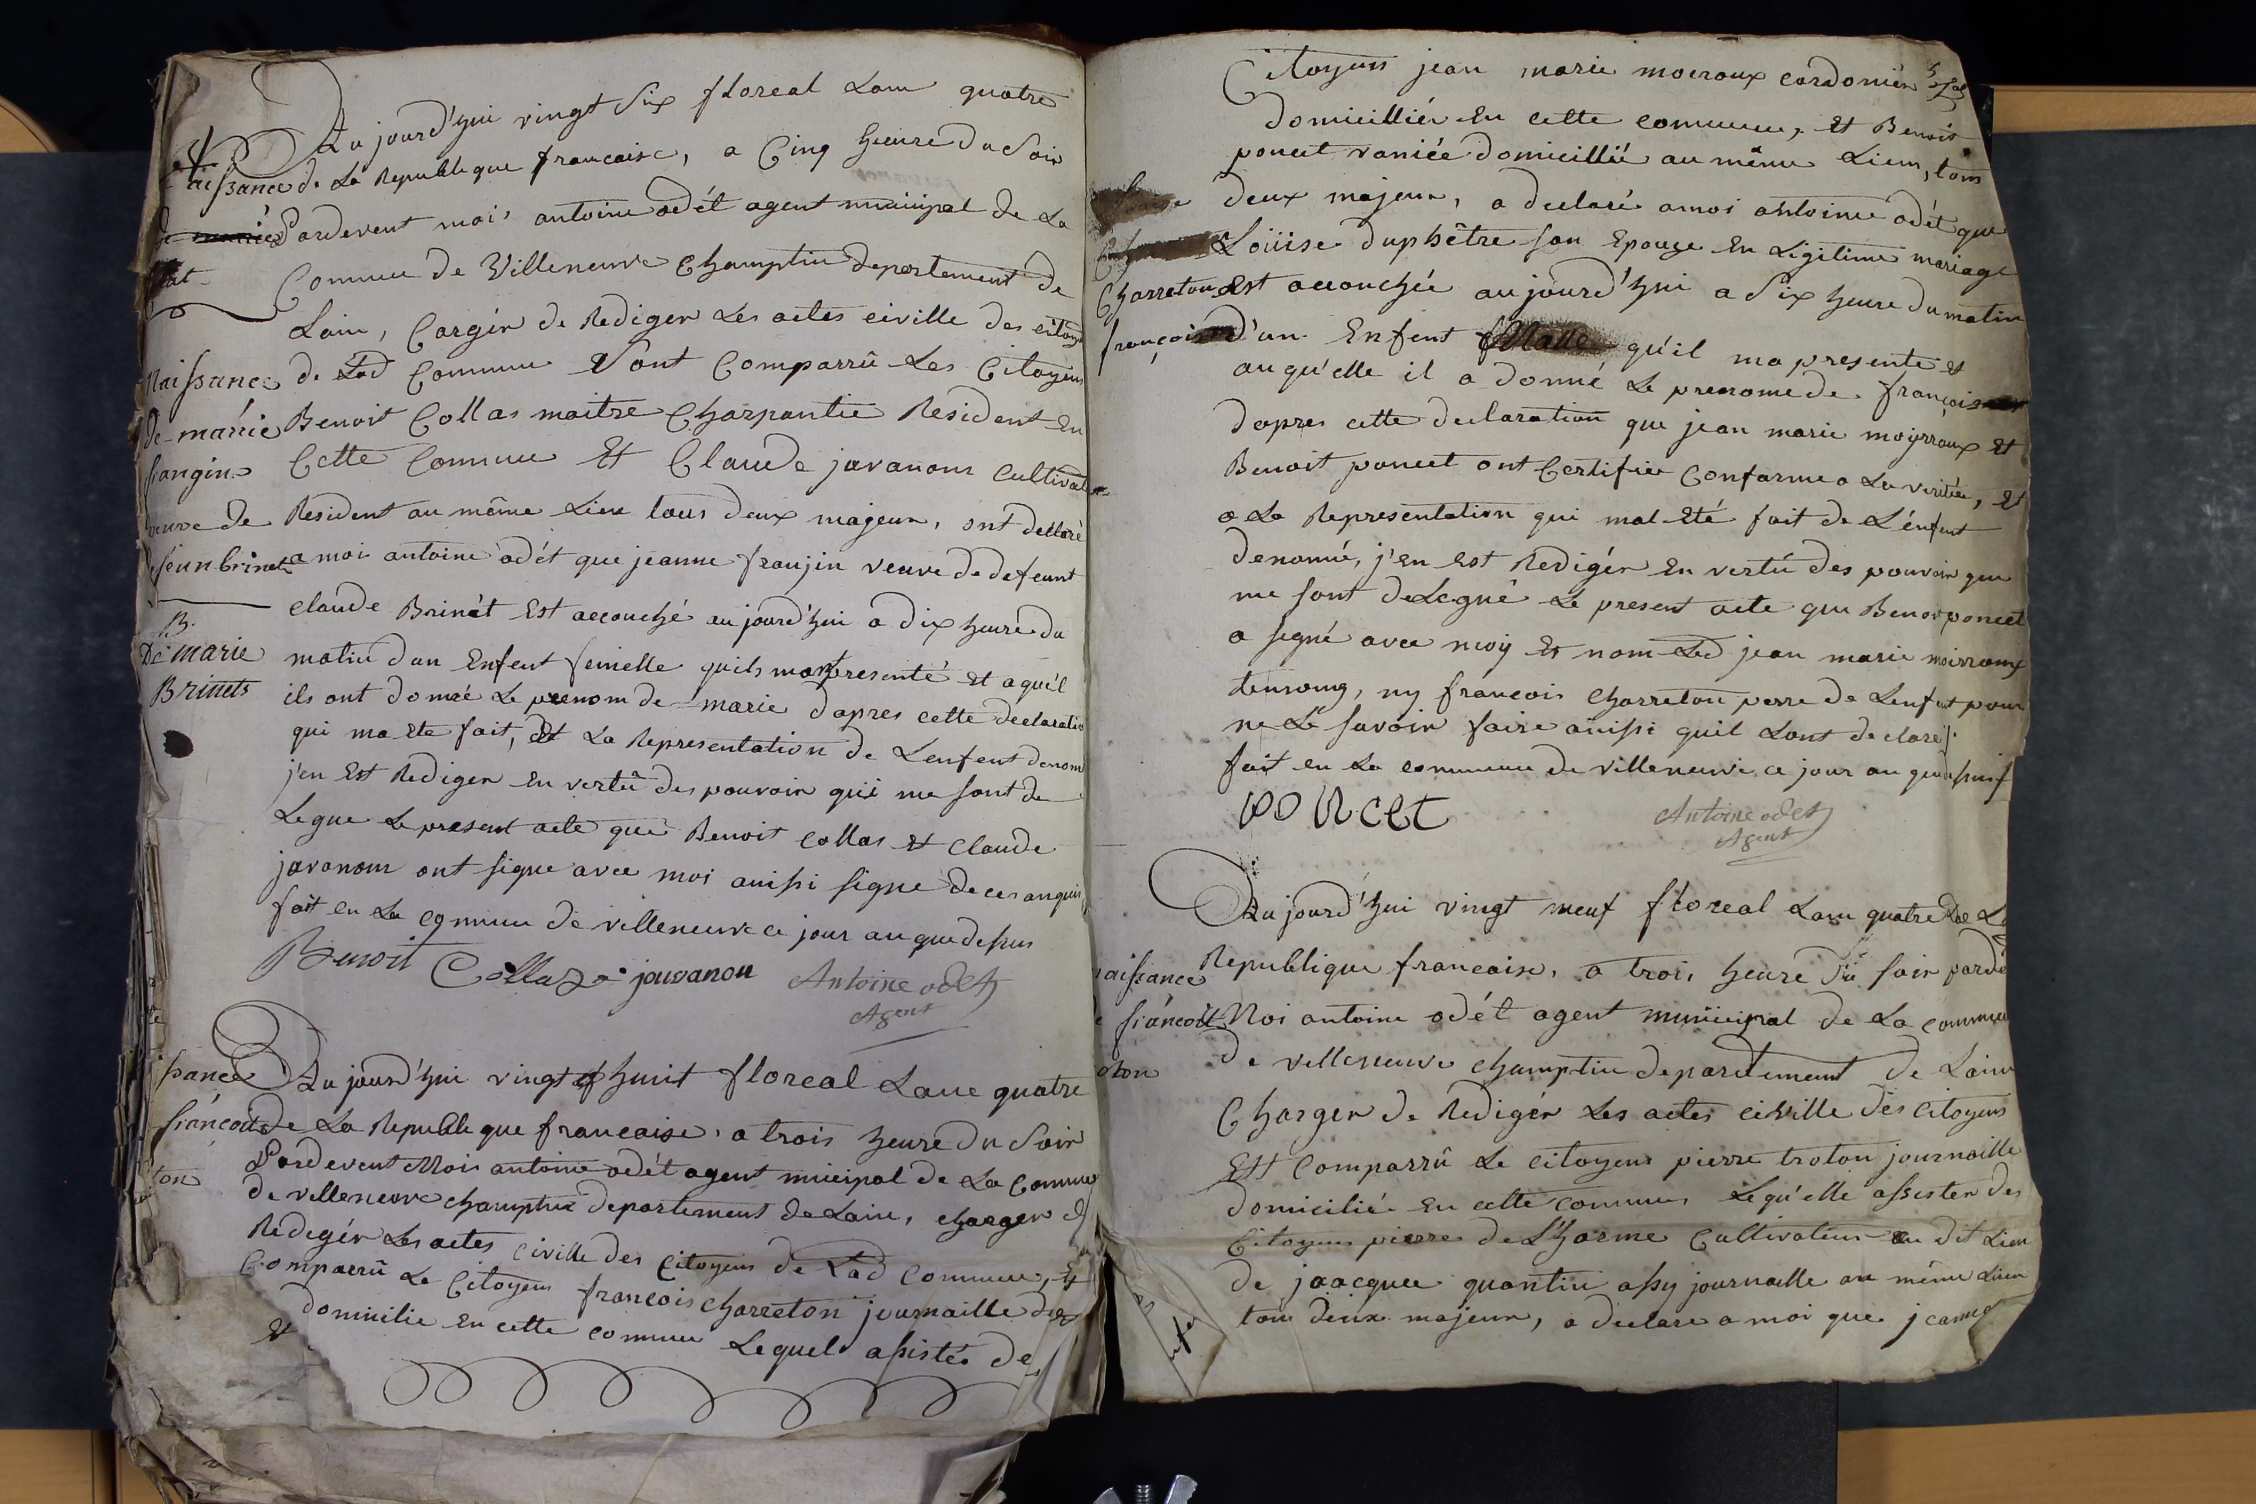 Au jourd'hui vingt six floreal Lan quatre
de La Republique francaise, a Cinq heure du Soir
Pardevent moi antoine odét agent municipal de La
Commu de Villeneuve Champtin departement de
Lain, Cargér de Rediger Les actes civille des citoy
de Lad Commune Sont Comparrû Les Citoyens
Benoit Collas maitre Charpantie Resident En
Cette Commune Et Claude javanon Cultivat
Resident au même Lieu tous deux majeur, ont declaré
a moi antoine odét que jeanne franjin veuve de defeunt
claude Brinét Est accouché au jourd'hui a dix heure du
matin dun Enfent femelle quils mont presenté et a quél
ils ont donné Le prenom de marie dapres cette declaratio
qui ma ete fait, Et La Representation de Lenfent denom
j'en Est Rediger En vertû des pouvoir qui me sont de
Legue Le present acte que Benoit Collas et Claude
javanon ont signe avec moi aussi signe de ces anquis
fait en La commu de villeneuve ce jour an que dessus
Benoit Collas jouvanon Antoine odet
Agent
aissance
de marié
Naissance
de marie
frangin
veuve de
feun brinet
B.
De marie
Brinets
Au jourd'hui vingt huit floreal Lane quatre
de La Republique francaise, a trois heure du Soir
Pardevent Moi antoine odét agent municipal de La Commu
de villeneuve champtin departement de Lain, charger d
Redigér Les actes civille des Citoyens de Lad Commune, Est
Comparrû Le Citoyen francois charreton journaille
domicilie En cette commune Lequel assistés de
ssance
francoit
ton
Citoyens jean marie moiroux cordonier
domicilliér En cette commune, Et Benoit
poncet domicillié au même Lieu, tous
deux majeur, a declaré a moi antoine odét que
Loüise duphêtre son Epouze En Ligitime mariage
Est accouchée au jourd'hui a Six heure du matin
d'un Enfent Malle qu'il ma presente et
au qu'elle il a donné Le prenome de françois
dapres cette declaration que jean marie moyrroux Et
Benoit poncet ont Certifiée Conforme a La veritée, Et
a La Representation qui mat eté fait de L'énfent
denomé, j'en Est Redigér En vertû des pouvoir que
me sont deLegué Le present acte que Benoit poncet
a segné avec moy Et nom Led jean marie moirroux
temoing, ny francois charreton perre de Lenfent pour
ne Le Savoir faire ainssi quil Lont declaré
fait en La commune de villeneuve ce jour an que dessus
poncet Antoine odet
Agent
Charreton
françois
Au jourd'hui vingt neuf floreal Lan quatre de La
Republique francaise, a trois heure du soir parde
Moi antoine odét agent municipal de La commune
de velleneuve champtin departement de Lain
Charger de Redigér Les actes civille des Citoyens
Est Comparrû Le citoyens pierre troton journaille
domicilié En cette commun Lequ'elle assister des
Citoyens pierre de L'horme Cultivateur au dit Lieu
de jaacquee quantin assy journaille au même Lieu
tou deux majeur, a declare a moi que jeanne
aissance
francoit
oton